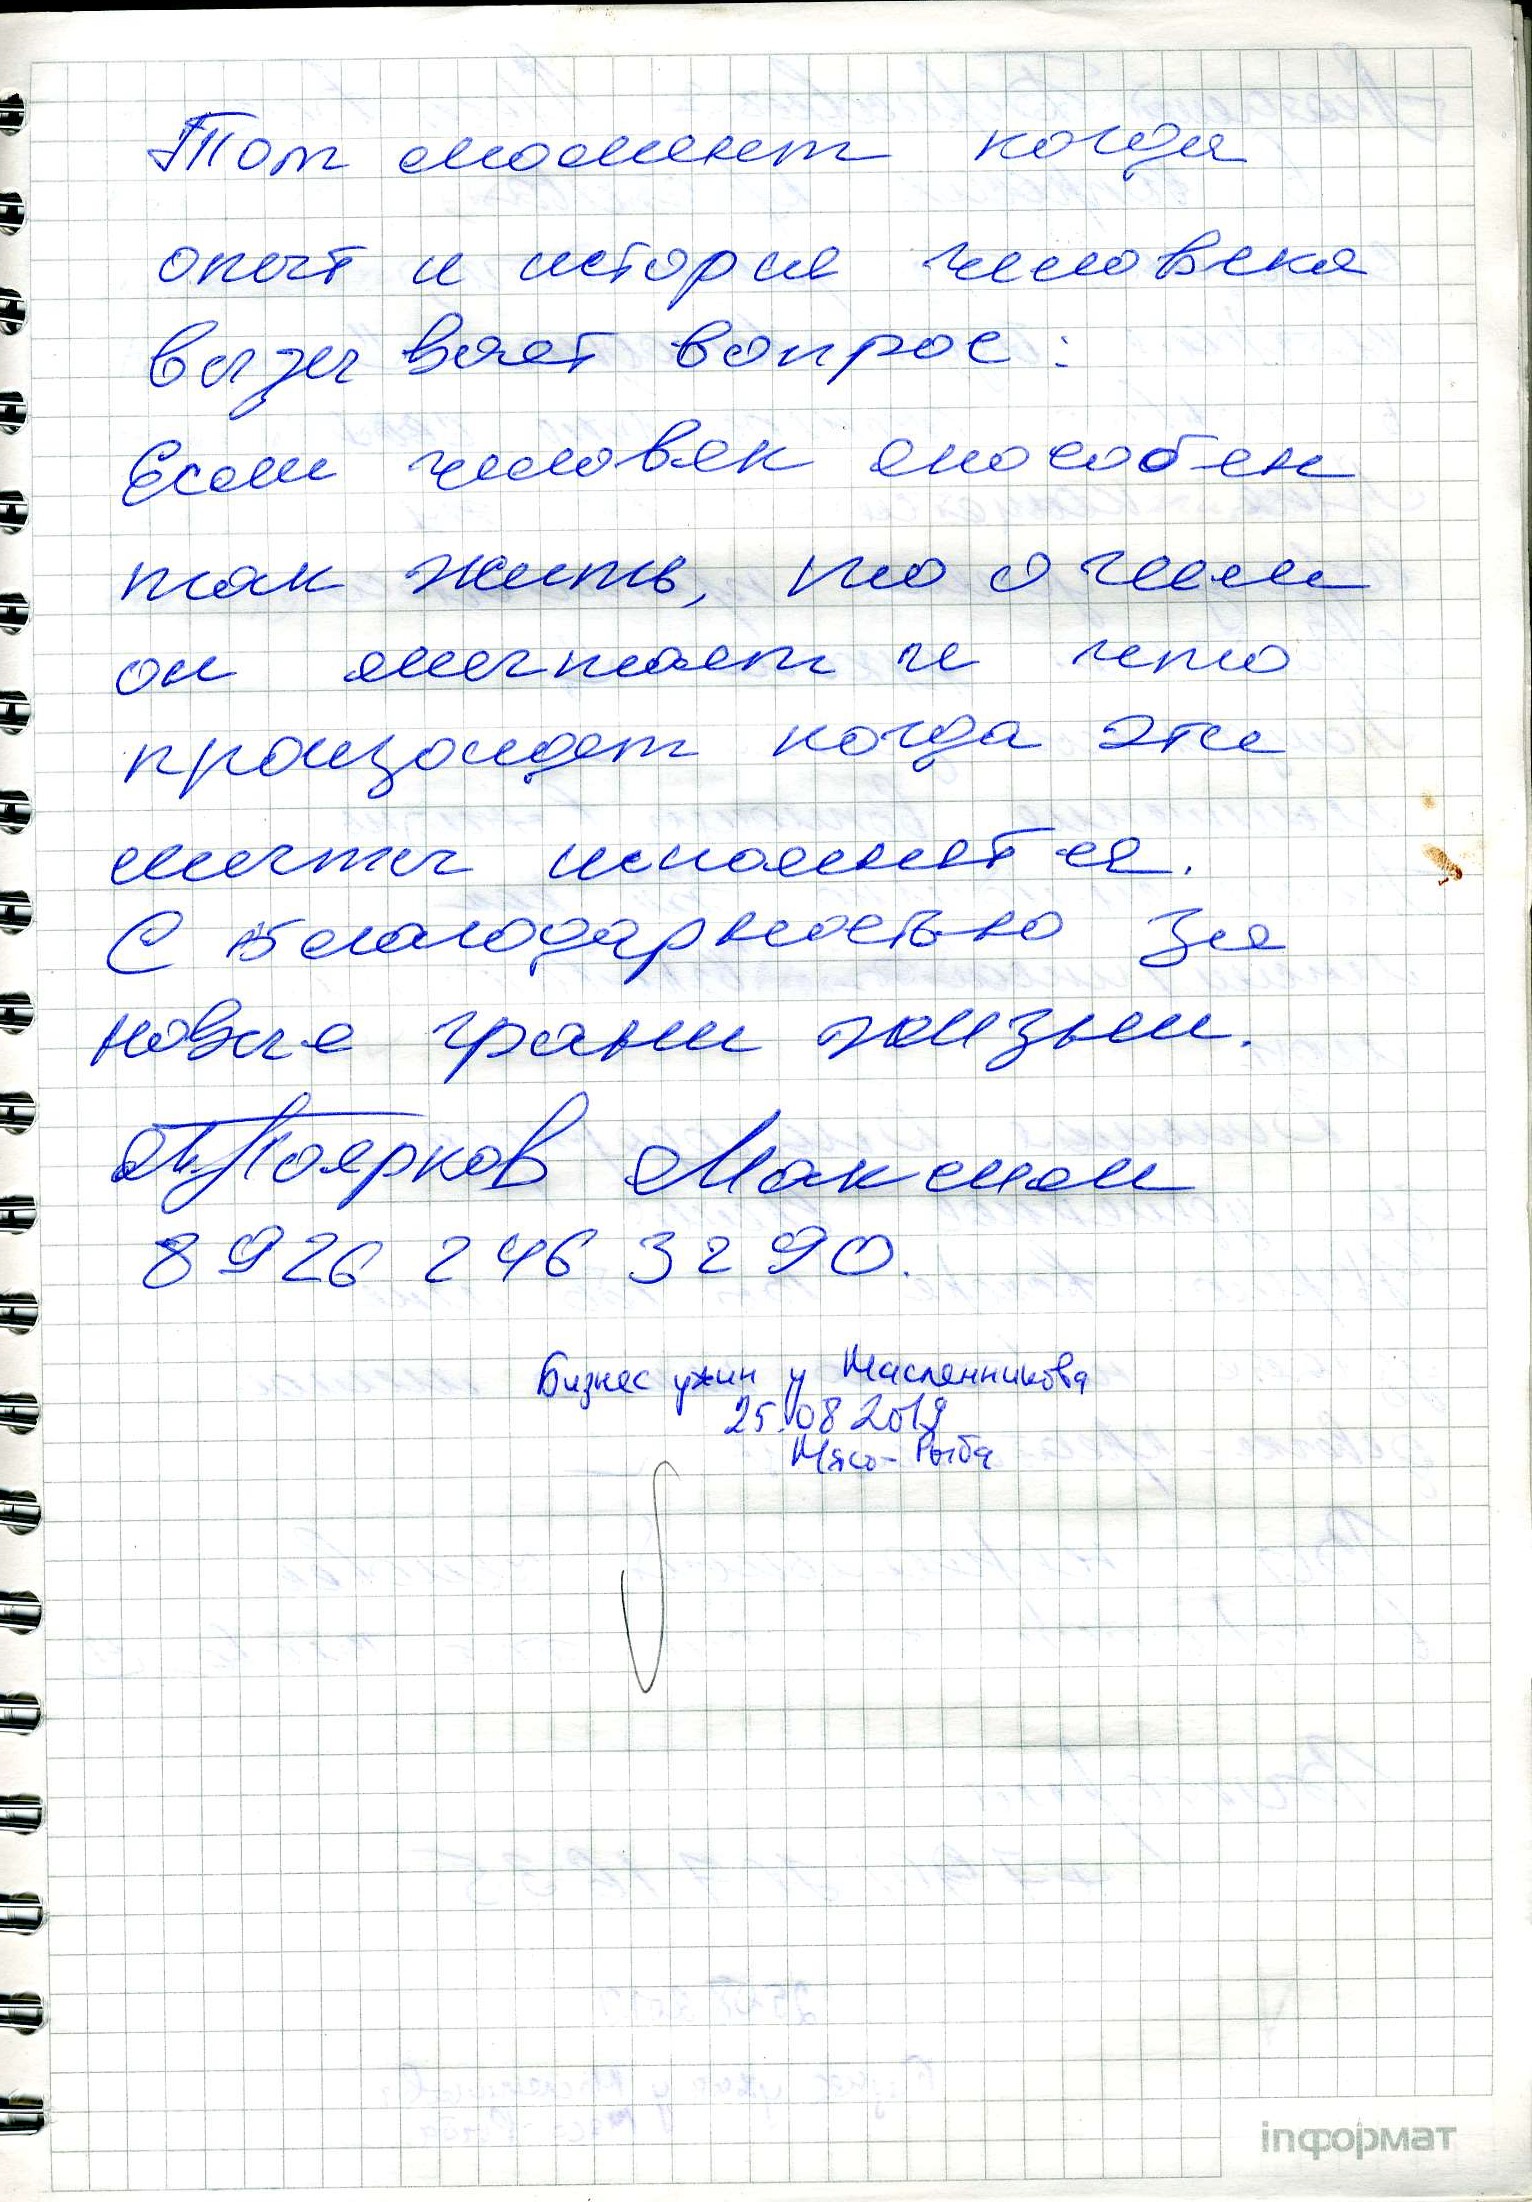 Тот момент когда
опыт и история человека
вызывает вопрос:
Если человек способен
так жить, то о чем
он мечтает и что
произойдет когда эти
мечты исполнятся.
С благодарностью за
новые грани жизни.
Поярков Максим
8 926 246 32 90.
Бизнес ужин у Масленникова
25.08 2019
Мясо-Рыба
inформат